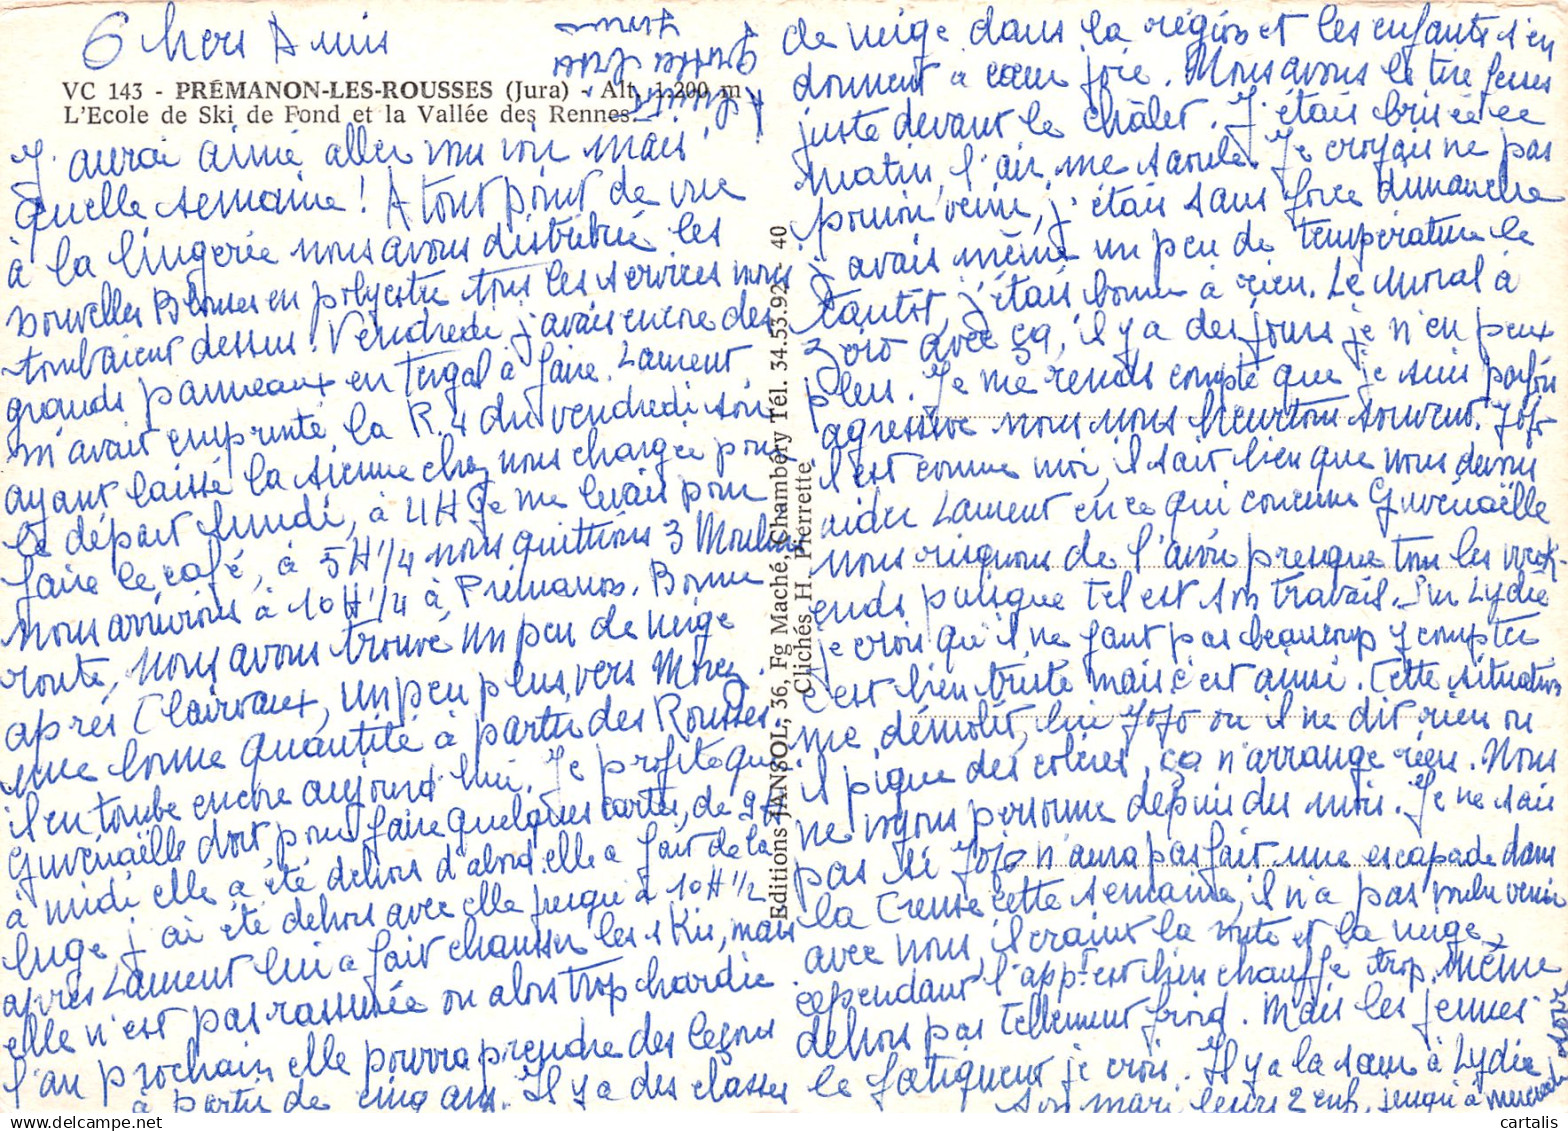 6 chers Amis
VC 143 - PRÉMANON-LES-ROUSSES (Jura) - Alt. 1.200 m
L'Ecole de Ski de Fond et la Vallée des Rennes.
J'aurai aimé aller vous voir mais
quelle semaine ! A tout point de vue
à la lingerie nous avons distribué les
nouvelles Blouses en polyestre tous les services nous
tombaient dessus. Vendredi j'avais encore des
grands panneaux en Tergal à faire. Laurent
m'avait emprunté la R.4 du vendredi soir
ayant laissé la sienne chez nous chargée pour
le départ lundi, à 4H je me levais pour
faire le café, à 5H1/4 nous quittions 3 Moulins
Nous arrivions à 10H1/4 à Prémanon. Bonne
route, nous avons trouvé un peu de neige
après Clairvaux, un peu plus vers Morez
une bonne quantité à partir des Rousses
il en tombe encore aujourd'hui. Je profite que
Gwénaëlle dort pour faire quelques cartes, de 9H
à midi elle a été dehors d'abord elle a fait de la
luge j'ai été dehors avec elle jusqu'à 10H1/2
après Laurent lui a fait chausser les skis, mais
elle n'est pas rassurée ou alors trop hardie
l'an prochain elle pourra prendre des leçons
à partir de cinq ans. Il y a des classes
de neige dans la région et les enfants s'en
donnent à cœur joie. Nous avons le tire fesses
juste devant le châlet. J'étais brisée ce
matin, l'air me saoule. Je croyais ne pas
pouvoir venir, j'étais sans force dimanche
j'avais même un peu de température le
tantôt, j'étais bonne à rien. Le moral à
zéro avec ça, il y a des jours je n'en peux
plus. Je me rends compte que je suis parfois
agressive nous nous heurtons souvent. Jojo
il est comme moi, il sait bien que nous devons
aider Laurent en ce qui concerne Gwénaëlle
nous risquons de l'avoir presque tous les week-
ends puisque tel est son travail. Sur Lydie
je crois qu'il ne faut pas beaucoup y compter
c'est bien triste mais c'est ainsi. Cette situation
me démolit, lui Jojo ou il ne dit rien ou
il pique des colères, ça n'arrange rien. Nous
ne voyons personne depuis des mois. Je ne sais
pas si Jojo n'aura pas fait une escapade dans
la Creuse cette semaine, il n'a pas voulu venir
avec nous, il craint la route et la neige,
cependant l'appt est bien chauffé trop. Même
dehors pas tellement froid. Mais les jeunes
le fatiguent je crois. Il y a la sœur à Lydie
son mari leurs 2 enf. jusqu'à mercredi
Editions JANSOL, 36, Fg Maché, Chambéry Tél. 34.53.92 - 40
Clichés H. Pierrette